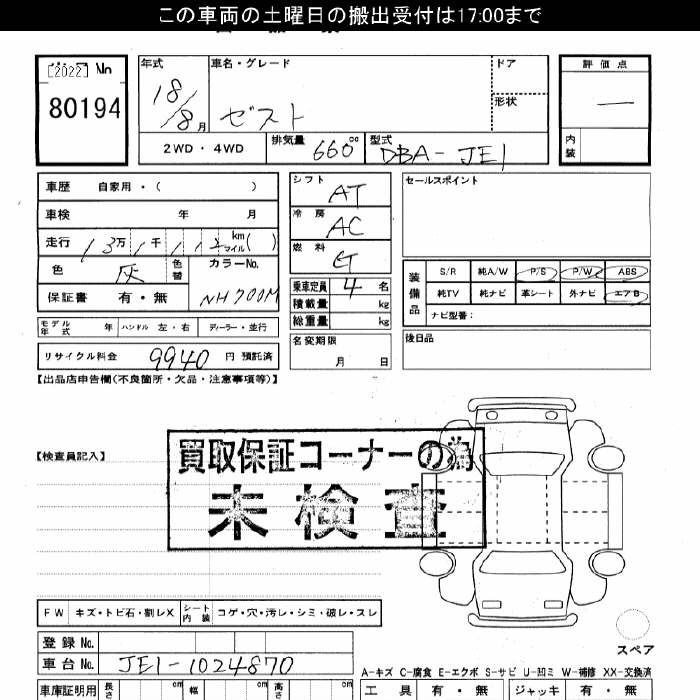 この車両の土曜日の搬出受付は17:00まで
[2022] No
80194
年式 18/8月
車名・グレード ゼスト
ドア
形状
評価点 —
内装
2WD・4WD
排気量 660cc
型式 DBA-JE1
車歴 自家用・( )
シフト AT
セールスポイント
車検 年 月
冷房 AC
走行 13万1千112km(マイル)
燃料 G
色 灰 色替
カラーNo. NH700M
保証書 有・無
乗車定員 4名
積載量 kg
総重量 kg
装備品 S/R 純A/W P/S P/W ABS
純TV 純ナビ 革シート 外ナビ エアB
ナビ型番:
モデル年式 年 ハンドル 左・右 ディーラー・並行
名変期限 月 日
後日品
リサイクル料金 9940 円 預託済
【出品店申告欄(不良箇所・欠品・注意事項等)】
【検査員記入】
買取保証コーナーの為
未検査
FW キズ・トビ石・割レX シート内装 コゲ・穴・汚レ・シミ・破レ・スレ
スペア
登録No.
車台No. JE1-1024870
A-キズ C-腐食 E-エクボ S-サビ U-凹ミ W-補修 XX-交換済
車庫証明用 長さ cm 幅 cm 高さ cm
工具 有・無 ジャッキ 有・無